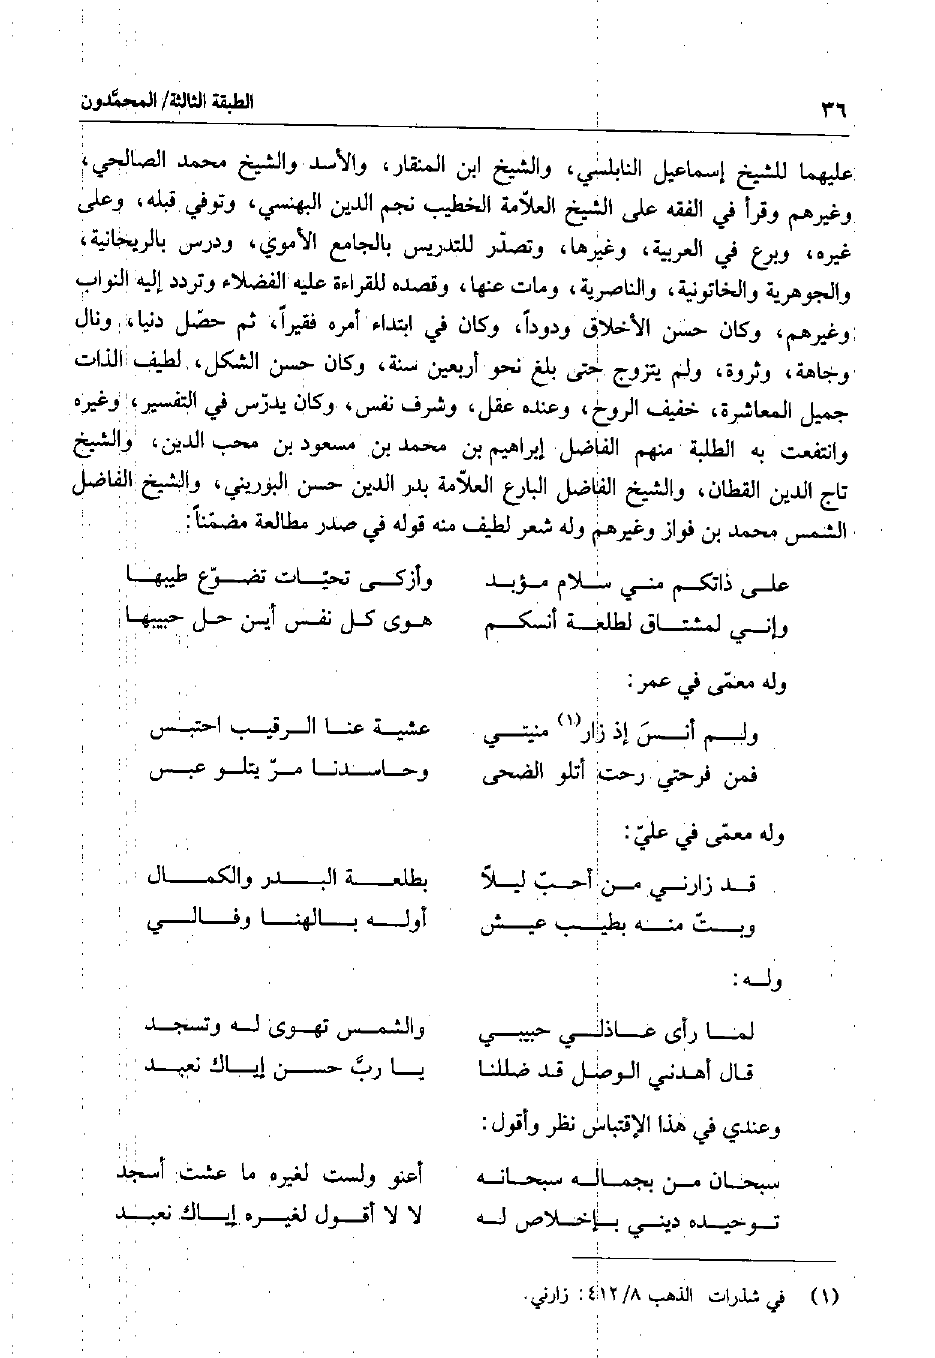 ٣٦ الطبقة الثالثة/ المحمَّدون
عليهما للشيخ إسماعيل النابلسي، والشيخ ابن المنقار، والأسد والشيخ محمد الصالحي،
وغيرهم وقرأ في الفقه على الشيخ العلاّمة الخطيب نجم الدين البهنسي، وتوفي قبله، وعلى
غيره، وبرع في العربية، وغيرها، وتصدّر للتدريس بالجامع الأموي، ودرس بالريحانية،
والجوهرية والخاتونية، والناصرية، ومات عنها، وقصده للقراءة عليه الفضلاء وتردد إليه النواب
وغيرهم، وكان حسن الأخلاق ودوداً، وكان في ابتداء أمره فقيراً، ثم حصّل دنيا، ونال
وجاهة، وثروة، ولم يتزوج حتى بلغ نحو أربعين سنة، وكان حسن الشكل، لطيف الذات
جميل المعاشرة، خفيف الروح، وعنده عقل، وشرف نفس، وكان يدرّس في التفسير، وغيره
وانتفعت به الطلبة منهم الفاضل إبراهيم بن محمد بن مسعود بن محب الدين، والشيخ
تاج الدين القطان، والشيخ الفاضل البارع العلاّمة بدر الدين حسن البوريني، والشيخ الفاضل
الشمس محمد بن فواز وغيرهم وله شعر لطيف منه قوله في صدر مطالعة مضمّناً:
على ذاتكم مني سلام مؤبد وأزكى تحيّات تضوّع طيبها
وإني لمشتاق لطلعة أنسكم هوى كل نفس أين حل حبيبها
وله معمّى في عمر:
ولم أنسَ إذ زار(١) منيتي عشية عنا الرقيب احتبس
فمن فرحتي رحت أتلو الضحى وحاسدنا مرّ يتلو عبس
وله معمّى في عليّ:
قد زارني من أحبّ ليلاً بطلعة البدر والكمال
وبتّ منه بطيب عيش أوله بالهنا وفالي
وله:
لما رأى عاذلي حبيبي والشمس تهوى له وتسجد
قال أهدني الوصل قد ضللنا يا ربَّ حسن إياك نعبد
وعندي في هذا الإقتباس نظر وأقول:
سبحان من بجماله سبحانه أعنو ولست لغيره ما عشت أسجد
توحيده ديني بإخلاص له لا لا أقول لغيره إياك نعبد
(١) في شذرات الذهب ٤١٢/٨: زارني.